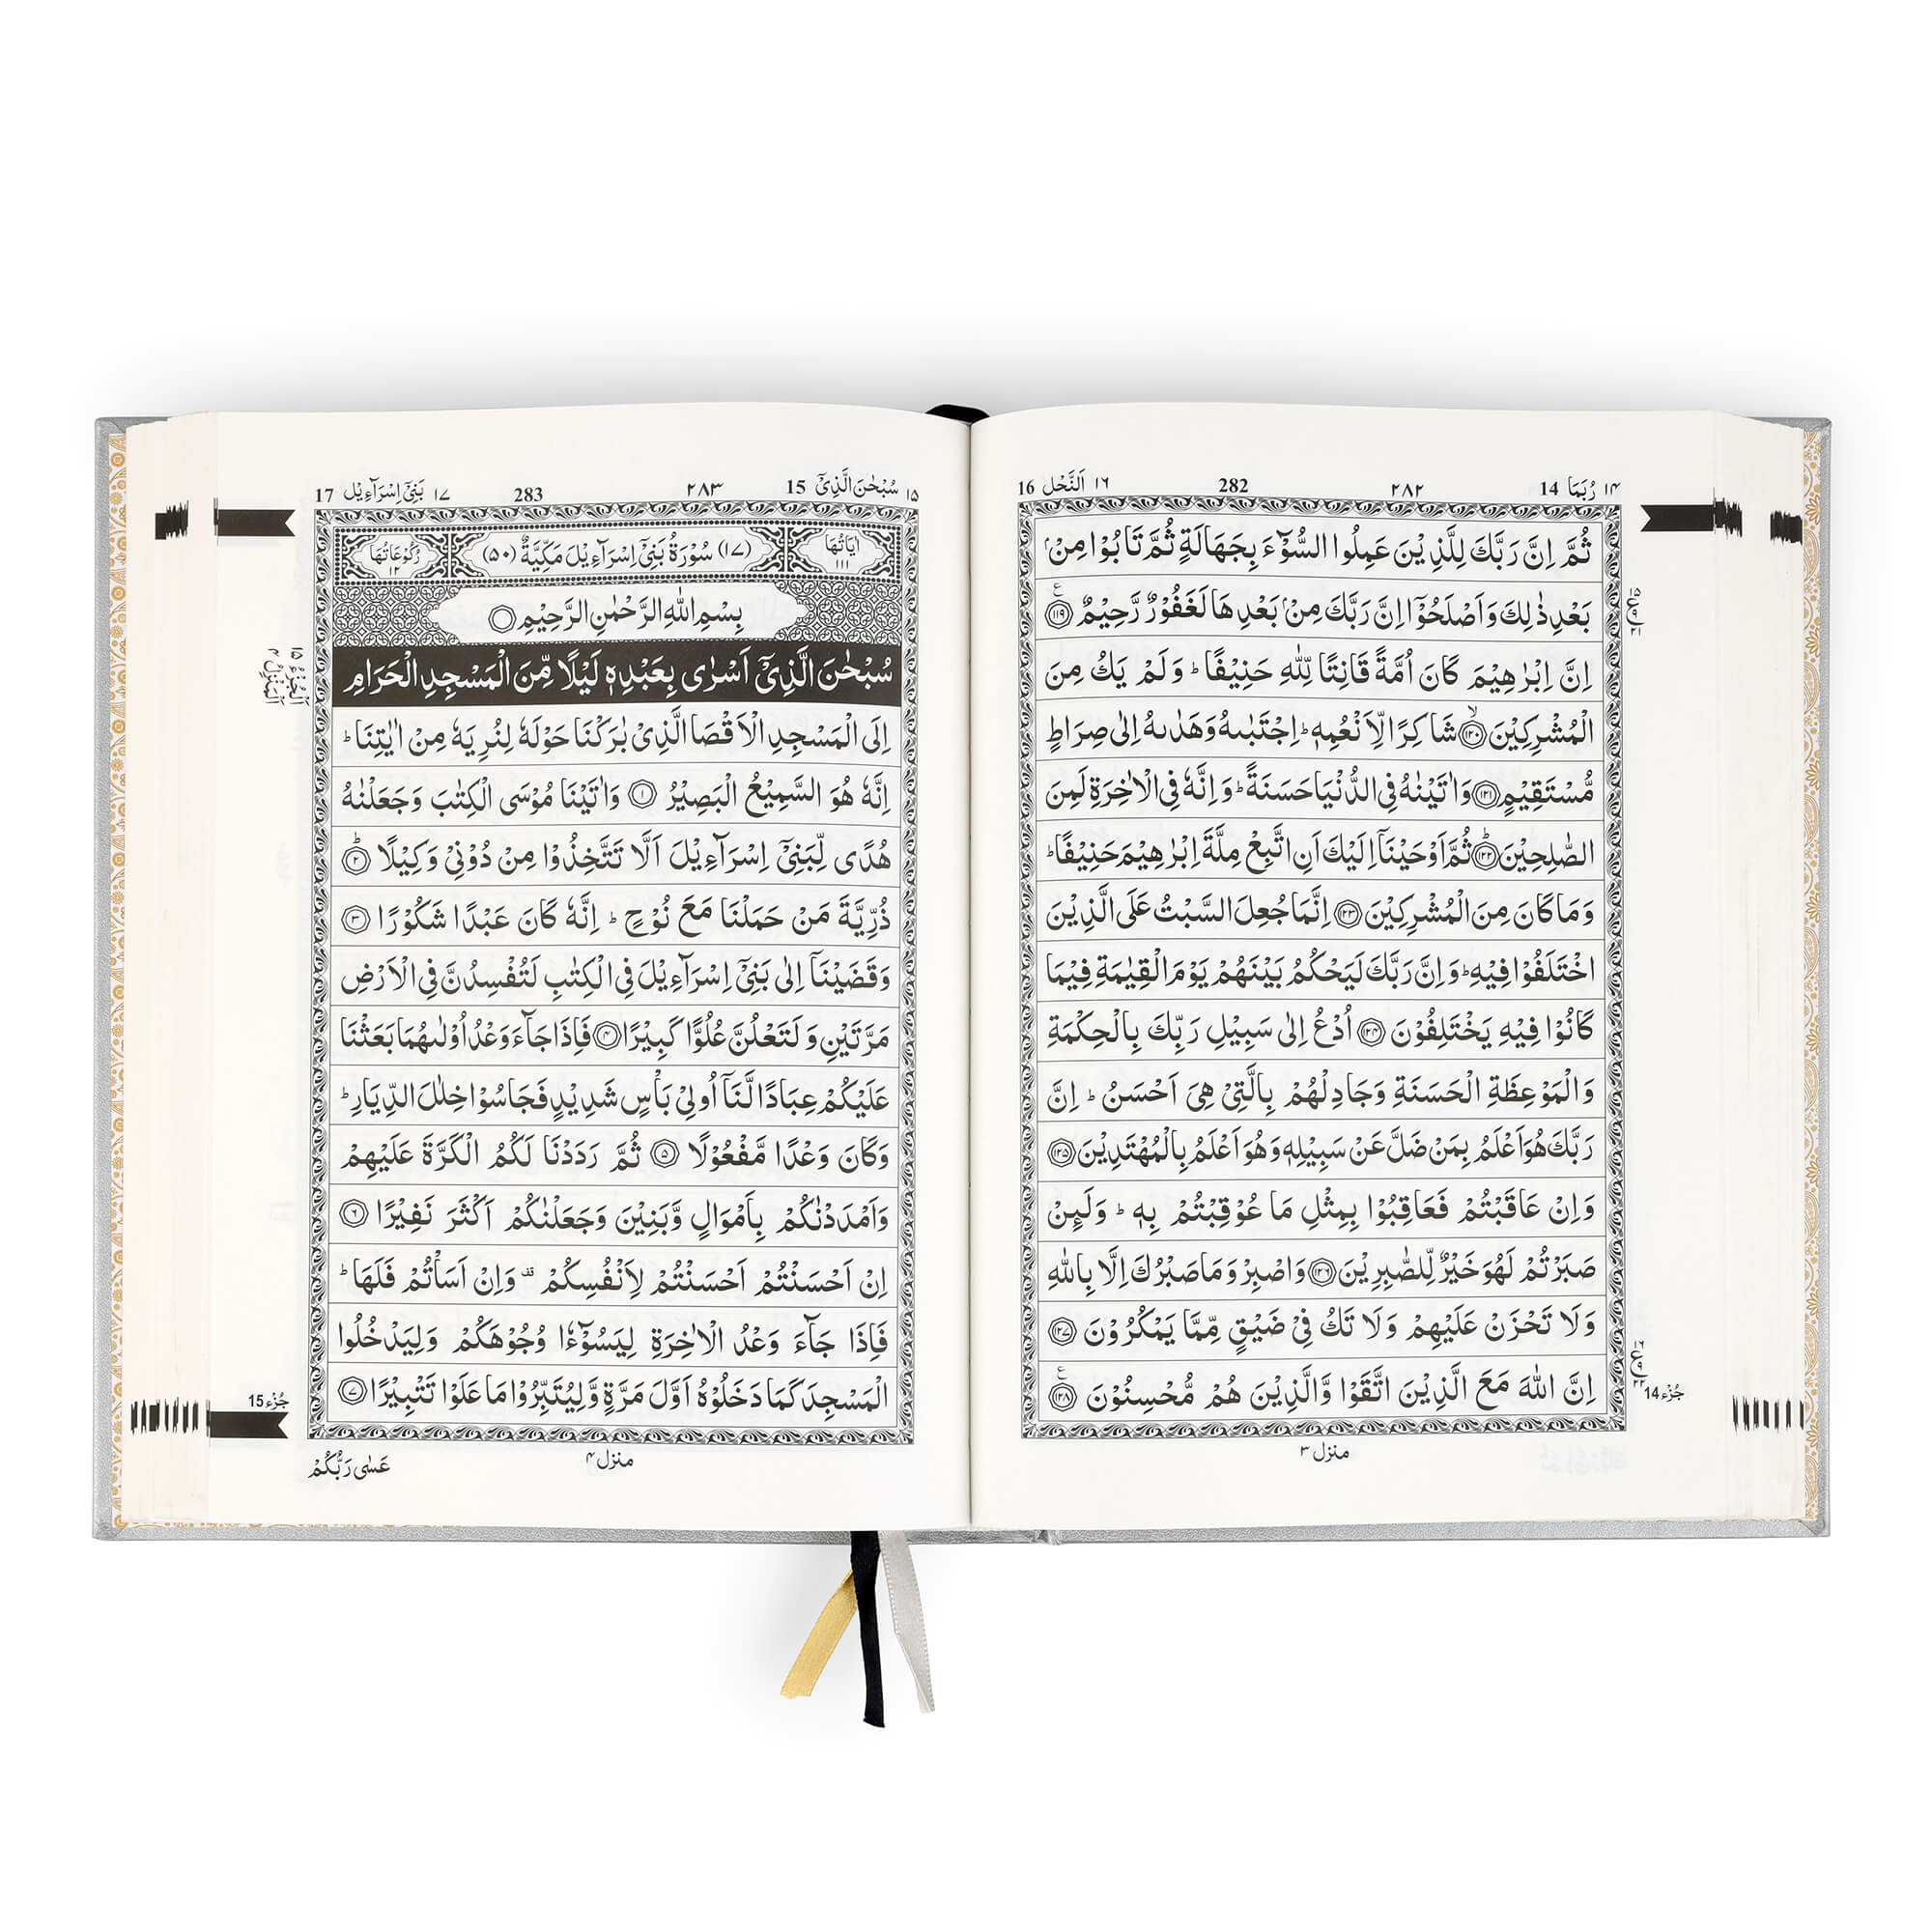 ۱۴ رُبَمَا 14 ۲۸۲ 282 ۱۶ اَلنَّحْل 16
ثُمَّ اِنَّ رَبَّكَ لِلَّذِيْنَ عَمِلُوا السُّوْٓءَ بِجَهَالَةٍ ثُمَّ تَابُوْا مِنْۢ
بَعْدِ ذٰلِكَ وَاَصْلَحُوْٓا اِنَّ رَبَّكَ مِنْۢ بَعْدِهَا لَغَفُوْرٌ رَّحِيْمٌ ۝۱۱۹
اِنَّ اِبْرٰهِيْمَ كَانَ اُمَّةً قَانِتًا لِّلّٰهِ حَنِيْفًا ؕ وَلَمْ يَكُ مِنَ
الْمُشْرِكِيْنَ ۝۱۲۰ۙ شَاكِرًا لِّاَنْعُمِهٖ ؕ اِجْتَبٰىهُ وَهَدٰىهُ اِلٰى صِرَاطٍ
مُّسْتَقِيْمٍ ۝۱۲۱ وَاٰتَيْنٰهُ فِى الدُّنْيَا حَسَنَةً ؕ وَاِنَّهٗ فِى الْاٰخِرَةِ لَمِنَ
الصّٰلِحِيْنَ ۝۱۲۲ؕ ثُمَّ اَوْحَيْنَآ اِلَيْكَ اَنِ اتَّبِعْ مِلَّةَ اِبْرٰهِيْمَ حَنِيْفًا ؕ
وَمَا كَانَ مِنَ الْمُشْرِكِيْنَ ۝۱۲۳ اِنَّمَا جُعِلَ السَّبْتُ عَلَى الَّذِيْنَ
اخْتَلَفُوْا فِيْهِ ؕ وَاِنَّ رَبَّكَ لَيَحْكُمُ بَيْنَهُمْ يَوْمَ الْقِيٰمَةِ فِيْمَا
كَانُوْا فِيْهِ يَخْتَلِفُوْنَ ۝۱۲۴ اُدْعُ اِلٰى سَبِيْلِ رَبِّكَ بِالْحِكْمَةِ
وَالْمَوْعِظَةِ الْحَسَنَةِ وَجَادِلْهُمْ بِالَّتِىْ هِىَ اَحْسَنُ ؕ اِنَّ
رَبَّكَ هُوَ اَعْلَمُ بِمَنْ ضَلَّ عَنْ سَبِيْلِهٖ وَهُوَ اَعْلَمُ بِالْمُهْتَدِيْنَ ۝۱۲۵
وَاِنْ عَاقَبْتُمْ فَعَاقِبُوْا بِمِثْلِ مَا عُوْقِبْتُمْ بِهٖ ؕ وَلَئِنْ
صَبَرْتُمْ لَهُوَ خَيْرٌ لِّلصّٰبِرِيْنَ ۝۱۲۶ وَاصْبِرْ وَمَا صَبْرُكَ اِلَّا بِاللّٰهِ
وَلَا تَحْزَنْ عَلَيْهِمْ وَلَا تَكُ فِىْ ضَيْقٍ مِّمَّا يَمْكُرُوْنَ ۝۱۲۷
اِنَّ اللّٰهَ مَعَ الَّذِيْنَ اتَّقَوْا وَّالَّذِيْنَ هُمْ مُّحْسِنُوْنَ ۝۱۲۸
جُزْء 14
منزل ۳
۱۵ سُبْحٰنَ الَّذِىْٓ 15 ۲۸۳ 283 ۱۷ بَنِىْٓ اِسْرَآءِيْل 17
اٰيَاتُهَا ۱۱۱ (۱۷) سُوْرَةُ بَنِىْٓ اِسْرَآءِيْلَ مَكِّيَّةٌ (۵۰) رُكُوْعَاتُهَا ۱۲
بِسْمِ اللّٰهِ الرَّحْمٰنِ الرَّحِيْمِ ۝
سُبْحٰنَ الَّذِىْٓ اَسْرٰى بِعَبْدِهٖ لَيْلًا مِّنَ الْمَسْجِدِ الْحَرَامِ
اِلَى الْمَسْجِدِ الْاَقْصَا الَّذِىْ بٰرَكْنَا حَوْلَهٗ لِنُرِيَهٗ مِنْ اٰيٰتِنَا ؕ
اِنَّهٗ هُوَ السَّمِيْعُ الْبَصِيْرُ ۝۱ وَاٰتَيْنَا مُوْسَى الْكِتٰبَ وَجَعَلْنٰهُ
هُدًى لِّبَنِىْٓ اِسْرَآءِيْلَ اَلَّا تَتَّخِذُوْا مِنْ دُوْنِىْ وَكِيْلًا ۝۲ؕ
ذُرِّيَّةَ مَنْ حَمَلْنَا مَعَ نُوْحٍ ؕ اِنَّهٗ كَانَ عَبْدًا شَكُوْرًا ۝۳
وَقَضَيْنَآ اِلٰى بَنِىْٓ اِسْرَآءِيْلَ فِى الْكِتٰبِ لَتُفْسِدُنَّ فِى الْاَرْضِ
مَرَّتَيْنِ وَلَتَعْلُنَّ عُلُوًّا كَبِيْرًا ۝۴ فَاِذَا جَآءَ وَعْدُ اُوْلٰىهُمَا بَعَثْنَا
عَلَيْكُمْ عِبَادًا لَّنَآ اُولِىْ بَاْسٍ شَدِيْدٍ فَجَاسُوْا خِلٰلَ الدِّيَارِ ؕ
وَكَانَ وَعْدًا مَّفْعُوْلًا ۝۵ ثُمَّ رَدَدْنَا لَكُمُ الْكَرَّةَ عَلَيْهِمْ
وَاَمْدَدْنٰكُمْ بِاَمْوَالٍ وَّبَنِيْنَ وَجَعَلْنٰكُمْ اَكْثَرَ نَفِيْرًا ۝۶
اِنْ اَحْسَنْتُمْ اَحْسَنْتُمْ لِاَنْفُسِكُمْ ۫ وَاِنْ اَسَاْتُمْ فَلَهَا ؕ
فَاِذَا جَآءَ وَعْدُ الْاٰخِرَةِ لِيَسُوْٓءٗا وُجُوْهَكُمْ وَلِيَدْخُلُوا
الْمَسْجِدَ كَمَا دَخَلُوْهُ اَوَّلَ مَرَّةٍ وَّلِيُتَبِّرُوْا مَا عَلَوْا تَتْبِيْرًا ۝۷
جُزْء 15
منزل ۴
عَسٰى رَبُّكُمْ